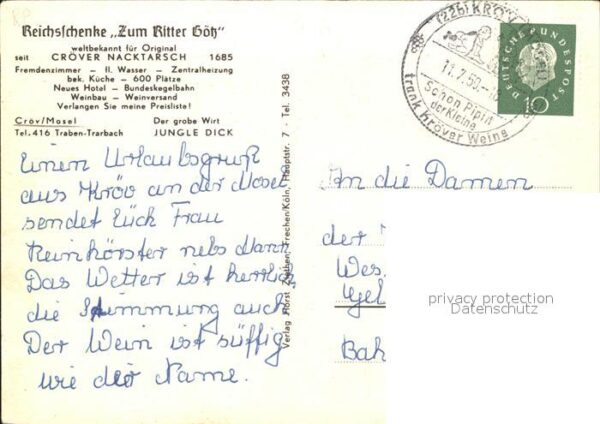 Reichsschenke „Zum Ritter Götz"
weltbekannt für Original
seit CRÖVER NACKTARSCH 1685
Fremdenzimmer — fl. Wasser — Zentralheizung
bek. Küche — 600 Plätze
Neues Hotel — Bundeskegelbahn
Weinbau — Weinversand
Verlangen Sie meine Preisliste!
Cröv/Mosel Der grobe Wirt
Tel. 416 Traben-Trarbach JUNGLE DICK
Einen Urlaubsgruß
aus Kröv an der Mosel
sendet Euch Frau
Reinhörster nebs Mann.
Das Wetter ist herrlich,
die Stimmung auch
Der Wein ist süffig
wie der Name.
Verlag Horst Frechen/Köln, Hauptstr. 7 - Tel. 3438
(22b) KRÖV
11.7.59
Schon Pipin
der Kleine
trank Kröver Weine
DEUTSCHE BUNDESPOST
10
An die Damen
der
Wes
Gel
Bah
privacy protection
Datenschutz